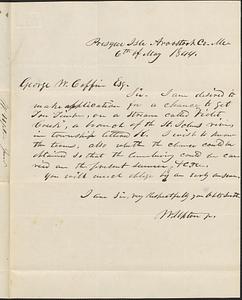 Presque Isle Aroostook Co. Me.
6th of May 1844.
George W. Coffin Esq.
Sir. I am desired to
make application for a chance to get
Ton Timber, on a Stream called Violet
Brook, a branch of the St. Johns river,
in township letter K. I wish to know
the terms, also whether the chance could be
obtained so that the lumbering could be car
ried on the present summer, &c.
You will much oblige by an early answer.
I am Sir, very Respectfully your Obt Servt.